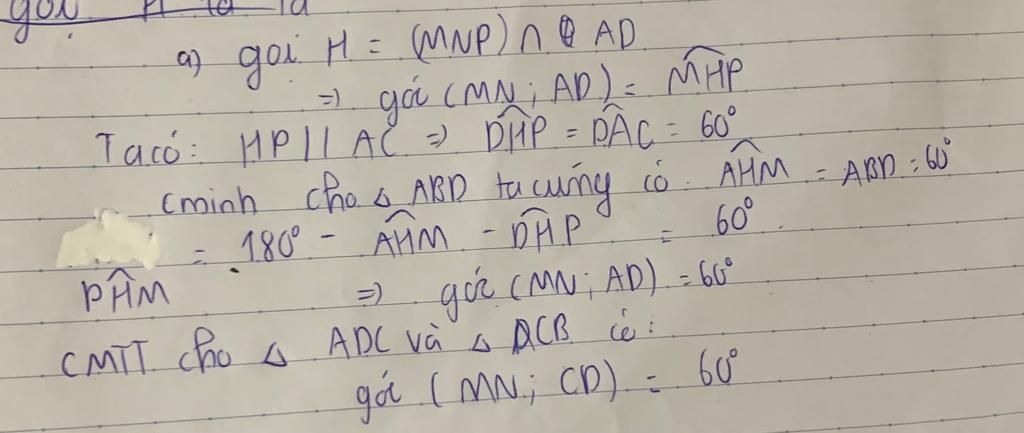 gọi H là
a) gọi H = (MNP) ∩ AD
=> góc (MN; AD) = \widehat{MHP}
Ta có: HP // AC => \widehat{DHP} = \widehat{DAC} = 60°
Cminh cho Δ ABD ta cũng có \widehat{AHM} = ABD = 60°
= 180° - \widehat{AHM} - \widehat{DHP} = 60°
\widehat{PHM} => góc (MN; AD) = 60°
CMTT cho Δ ADC và Δ DCB có:
góc (MN; CD) = 60°